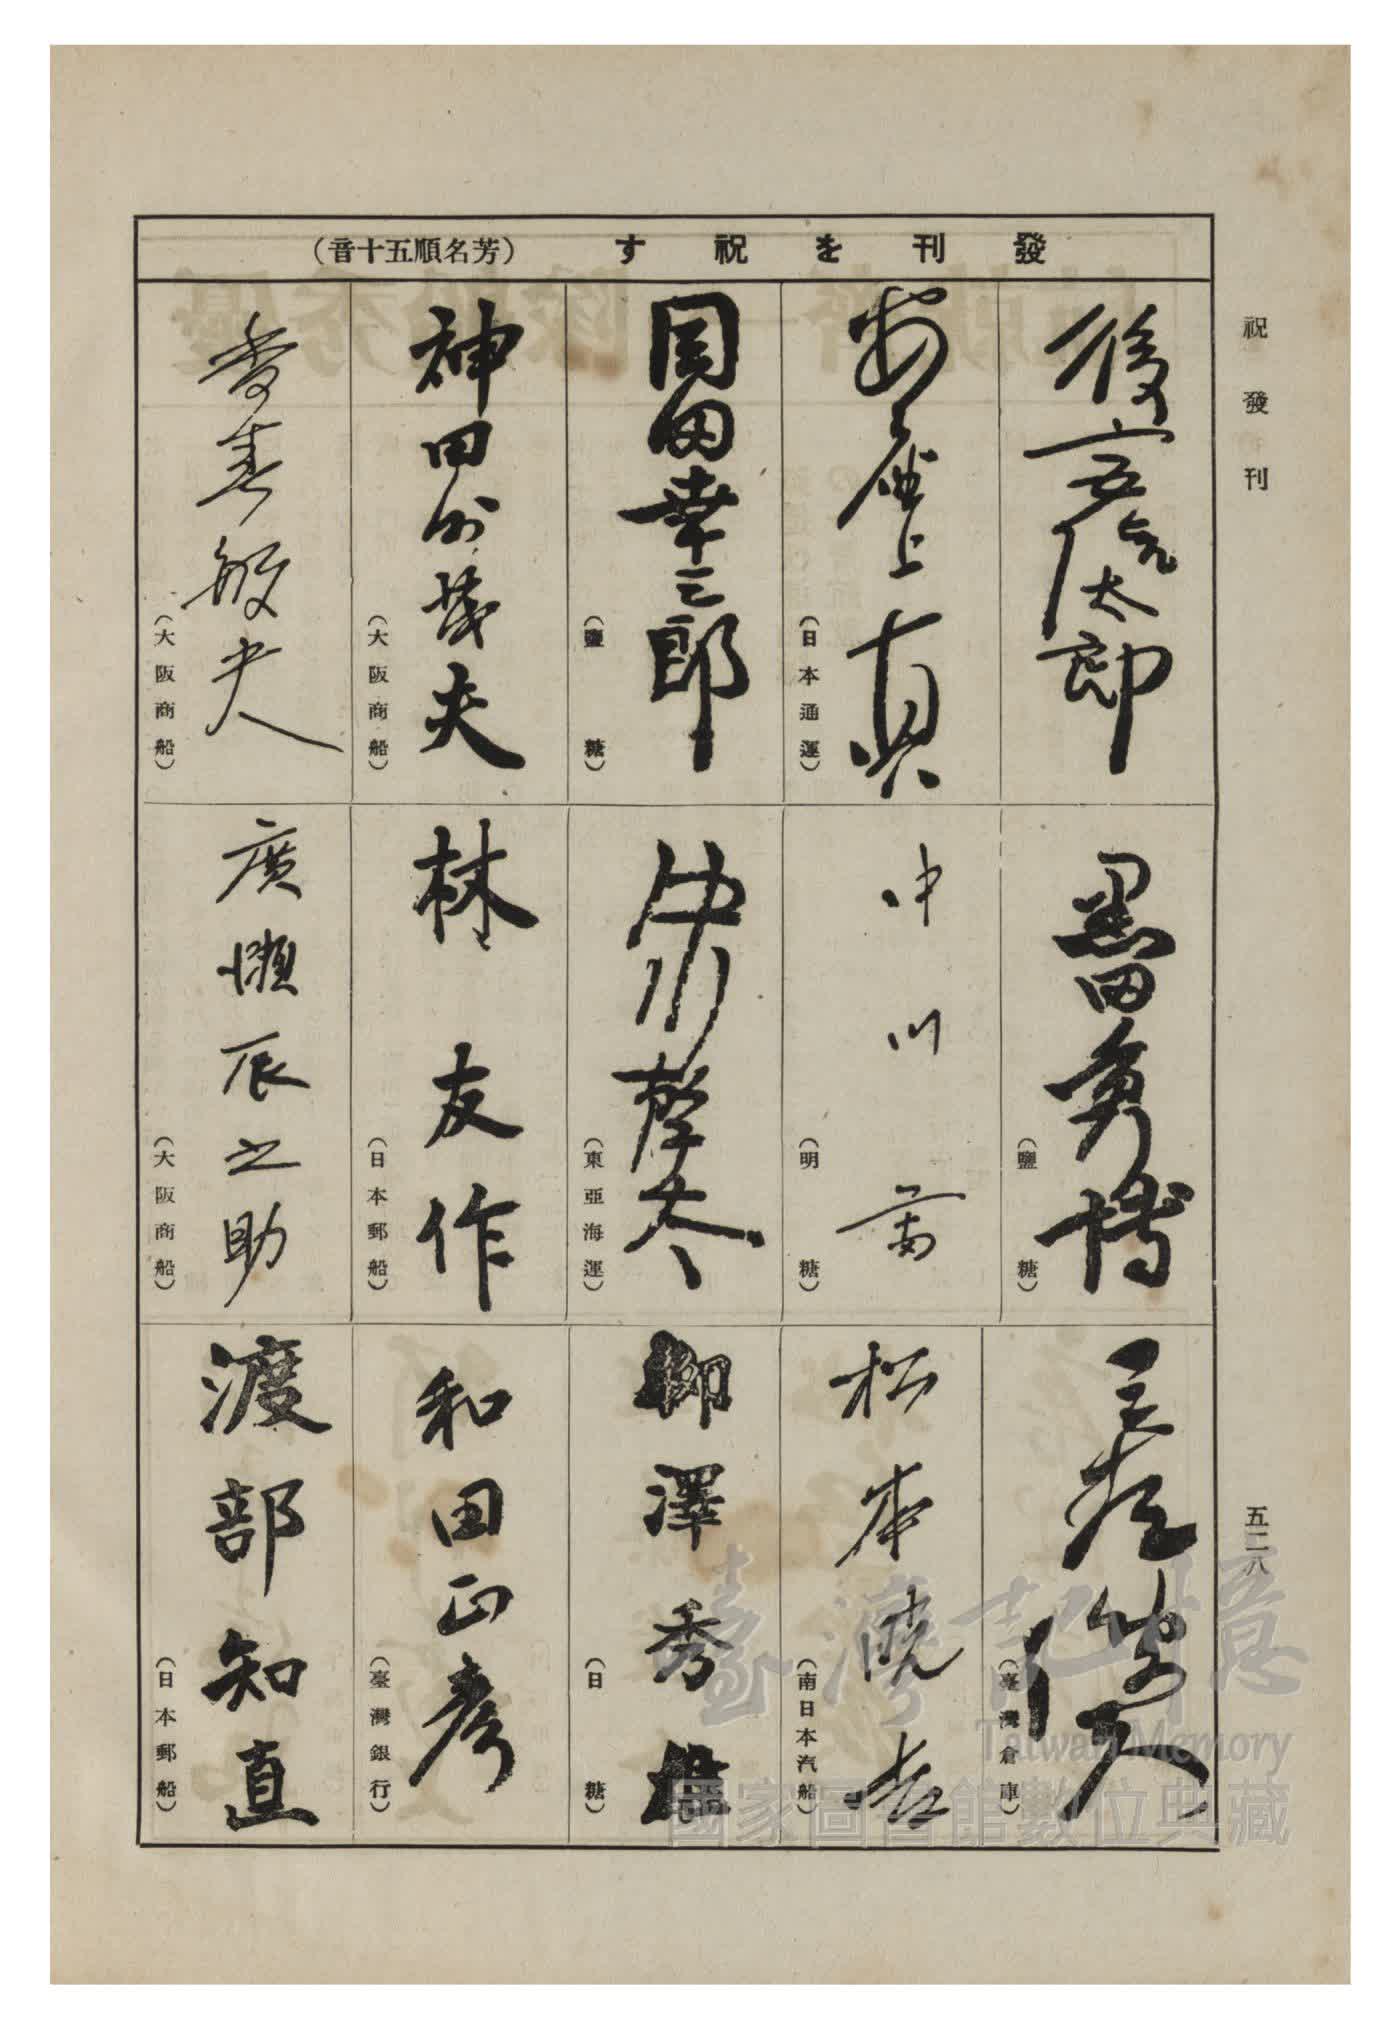 祝發刊
五二八
發刊を祝す（芳名順五十音）
後宮太郎
安座上真
（日本通運）
岡田幸三郎
（鹽糖）
神田外茂夫
（大阪商船）
香春敏夫
（大阪商船）
黒田
（鹽糖）
中川
（明糖）
中川
（東亞海運）
林友作
（日本郵船）
廣瀬辰之助
（大阪商船）
三
（臺灣倉庫）
松本曉吉
（南日本汽船）
柳澤秀雄
（日糖）
和田正彦
（臺灣銀行）
渡部知直
（日本郵船）
臺灣記憶
Taiwan Memory
國家圖書館數位典藏